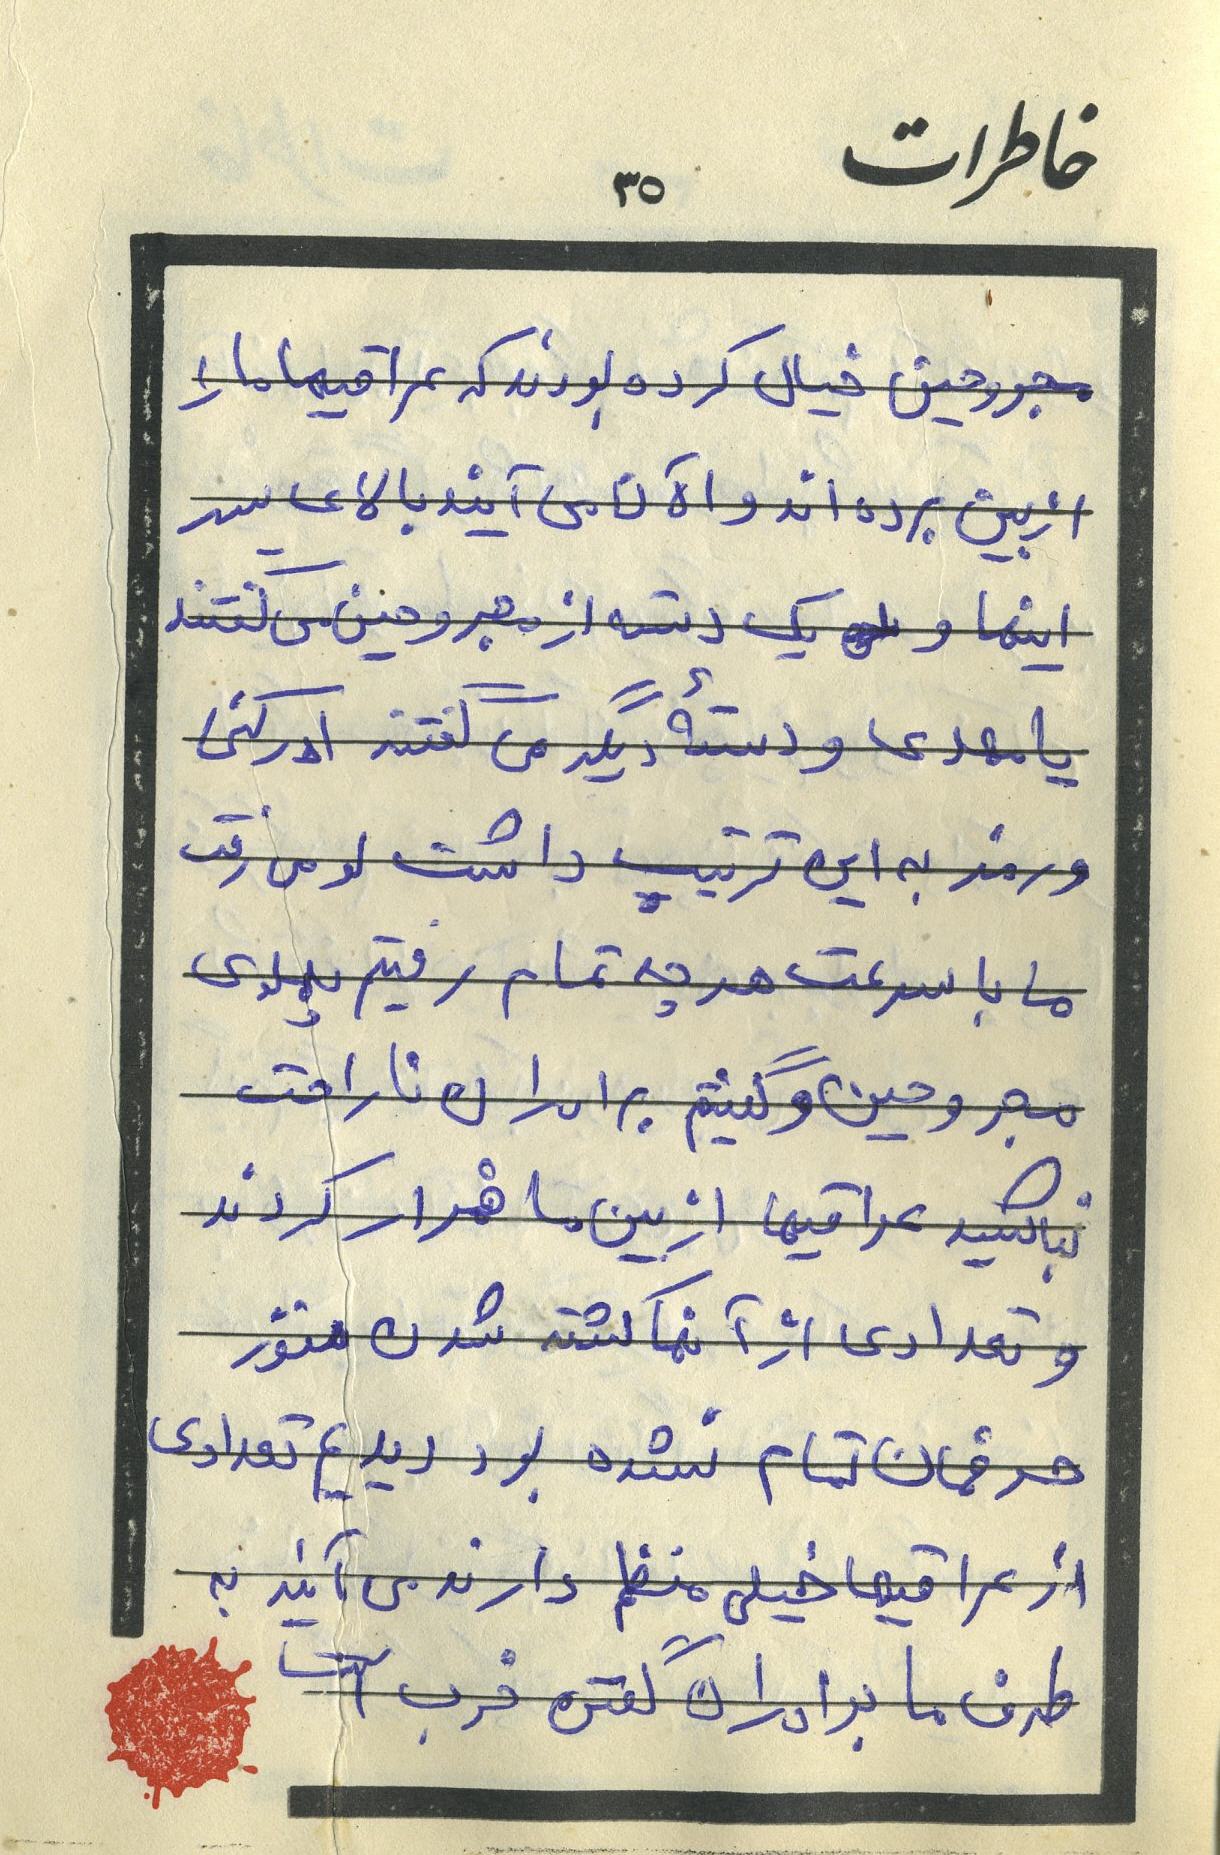 خاطرات
۳۵
مجروحین خیال کرده بودند که عراقیها ما را
از بین برده اند و الآن می آیند بالای سر
اینها و یک دسته از مجروحین می گفتند
یا مهدی و دستهٔ دیگر می گفتند ادرکنی
و رمز به این ترتیب داشت لو می رفت
ما با سرعت هر چه تمام رفتیم پهلوی
مجروحین و گفتیم برادران ناراحت
نباشید عراقیها از بین ما فرار کردند
و تعدادی از آنها کشته شدن هنوز
حرفمان تمام نشده بود دیدیم تعدادی
از عراقیها خیلی منظم دارند می آیند به
طرف ما برادران گفتن خوب است